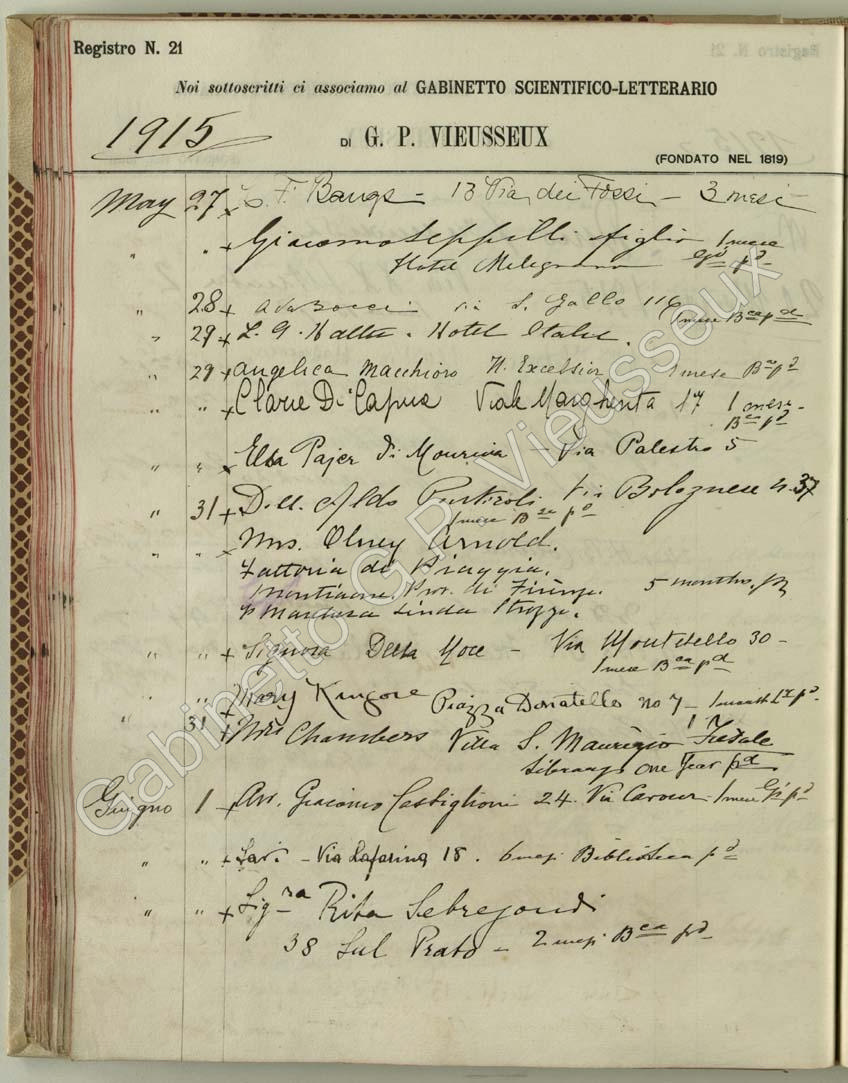 Registro N. 21
Noi sottoscritti ci associamo al GABINETTO SCIENTIFICO-LETTERARIO
1915
DI G. P. VIEUSSEUX
(FONDATO NEL 1819)
May 27 + F. Bangs - 13 Via dei Fossi - 3 mesi
" " + Giacomo Seppilli figlio 1 mese
Hotel Melegnano pd
" 28 + Ada Bocci via S. Gallo 116
1 mese Bca pd
" 29 + Hotel Italie.
" 29 + Angelica Macchioro H. Excelsior 1 mese Bca pd
" " + Clarie Di Capua Viale Margherita 17 1 mese -
Bca pd
" " + Elsa Pajer di Monriva - Via Palestro 5
" 31 + Dott. Aldo Via Bolognese n. 37
1 mese Bca pd
" " + Mrs. Olney Arnold.
Fattoria di Piaggia.
Prov. di Firenze. 5 months.
Linda Strozzi.
" " + Signora Della Noce - Via Montebello 30 -
1 mese Bca pd
" " + Mary Kingore Piazza Donatello no 7 - 1 month pd
" 31 + Mrs Chambers Villa S. Maurizio Fiesole
Library one Year pd
Giugno 1 + Avv. Giacomo Castiglioni 24. Via Cavour - 1 mese pd
" " + - Via Lafarina 18. 6 mesi Biblioteca pd
" " + Sigra Rita Sebregondi
38 Sul Prato - 2 mesi Bca pd
Gabinetto G.P. Vieusseux